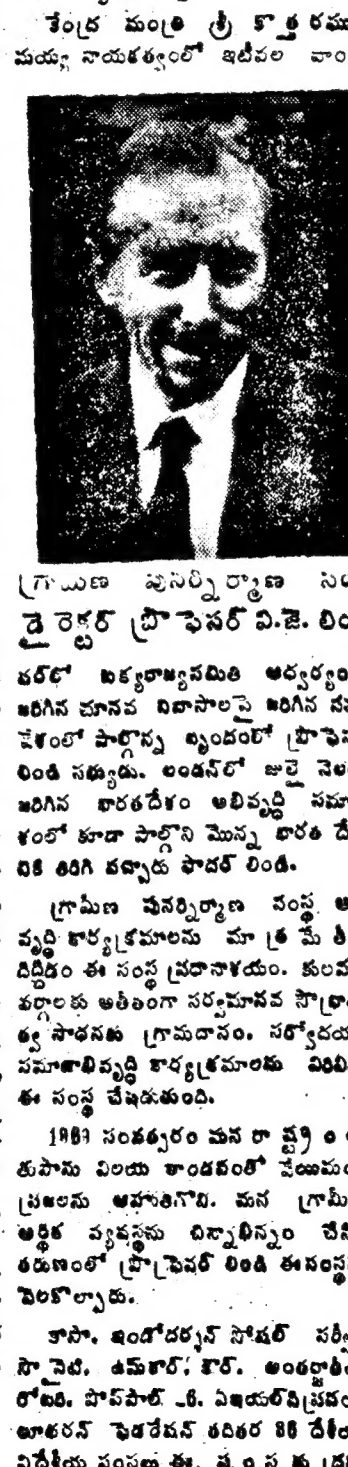 కేంద్ర మంత్రి శ్రీ కొత్త రఘు
మయ్య నాయకత్వంలో ఇటీవల వాం
గ్రామీణ పునర్నిర్మాణ సం
డైరెక్టర్ ప్రొఫెసర్ వి.జె. లిం
వర్‌లో ఐక్యరాజ్యసమితి ఆధ్వర్యం
జరిగిన మానవ నివాసాలపై జరిగిన సమ
వేశంలో పాల్గొన్న బృందంలో ప్రొఫెస
లిండి సభ్యుడు. లండన్‌లో జులై నెల
జరిగిన భారతదేశం అభివృద్ధి సమా
శంలో కూడా పాల్గొని మొన్న భారత దే
నికి తిరిగి వచ్చారు ఫాదర్ లిండి.
గ్రామీణ పునర్నిర్మాణ సంస్థ అ
వృద్ధి కార్యక్రమాలను మాత్రమే తీ
దిద్దడం ఈ సంస్థ ప్రధానాశయం. కులమ
వర్గాలకు అతీతంగా సర్వమానవ సౌభ్రా
త్వ సాధనకు గ్రామదానం. సర్వోదయ
సమాజాభివృద్ధి కార్యక్రమాలకు
ఈ సంస్థ చేపడుతుంది.
సంవత్సరం మన రాష్ట్రం
తుపాను విలయ తాండవంతో
ప్రజలను ఆహుతిగొని. మన గ్రామీ
ఆర్థిక వ్యవస్థను చిన్నాభిన్నం చేసి
తరుణంలో ప్రొఫెసర్ లిండి ఈసంస్థ
నెలకొల్పారు.
కాసా. ఇండోదర్శన్ సోషల్ సర్వీ
సొసైటీ. ఉమ్‌కార్, కార్. అంతర్జాతీ
రోటరీ.
లూథరన్ ఫెడరేషన్ తదితర 86 దేశీ
విదేశీయ సంస్థలు ఈ